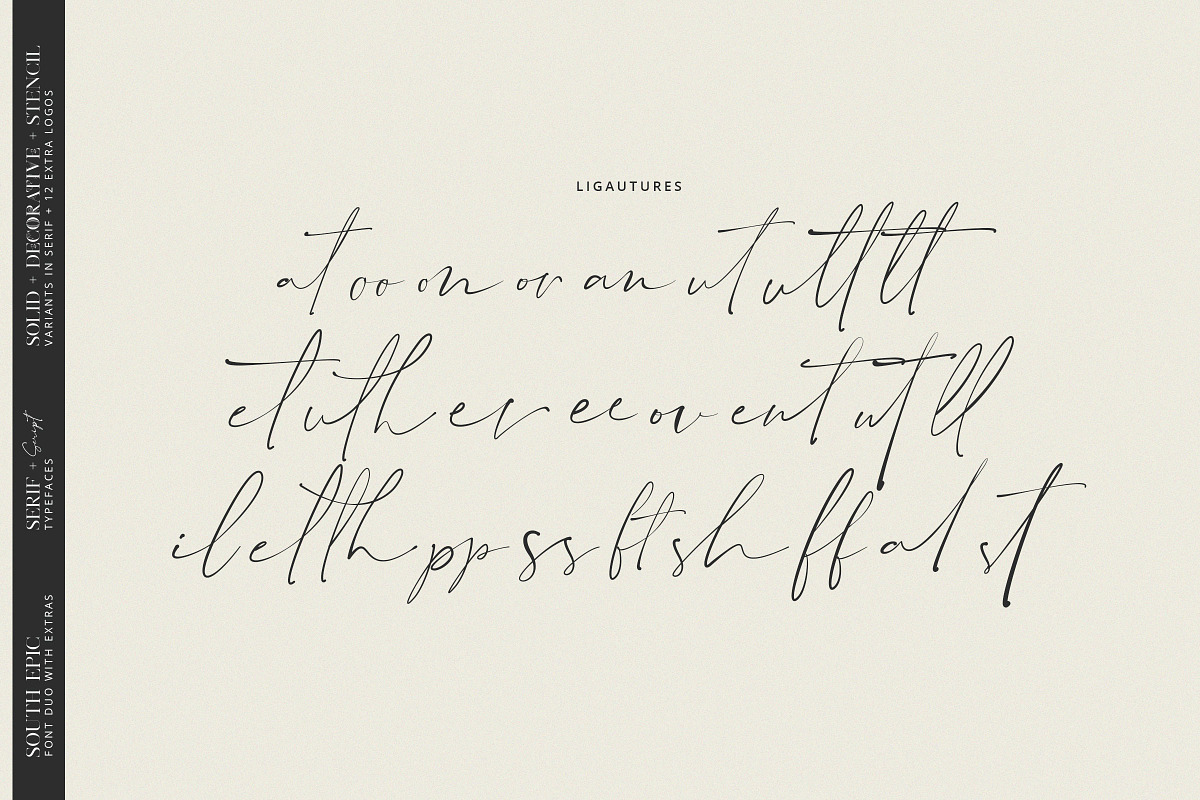 LIGAUTURES
at oo on or an ut utt tt
et uth er ee ov ent ut ll
il ett th pp ss ft sh ff al st
SOLID + DECORATIVE + STENCIL
VARIANTS IN SERIF + 12 EXTRA LOGOS
SERIF + Script
TYPEFACES
SOUTH EPIC
FONT DUO WITH EXTRAS